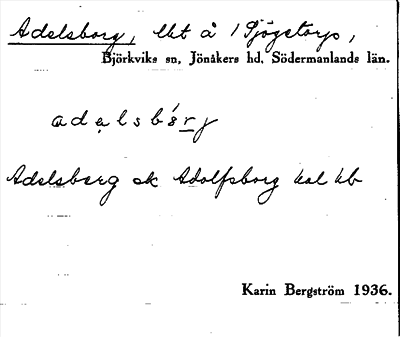 Adelsborg, lht å 1 Sjögetorp,
Björkviks sn, Jönåkers hd, Södermanlands län.
adelsbårj
Adelsberg ek Adolfsborg kal hb
Karin Bergström 1936.